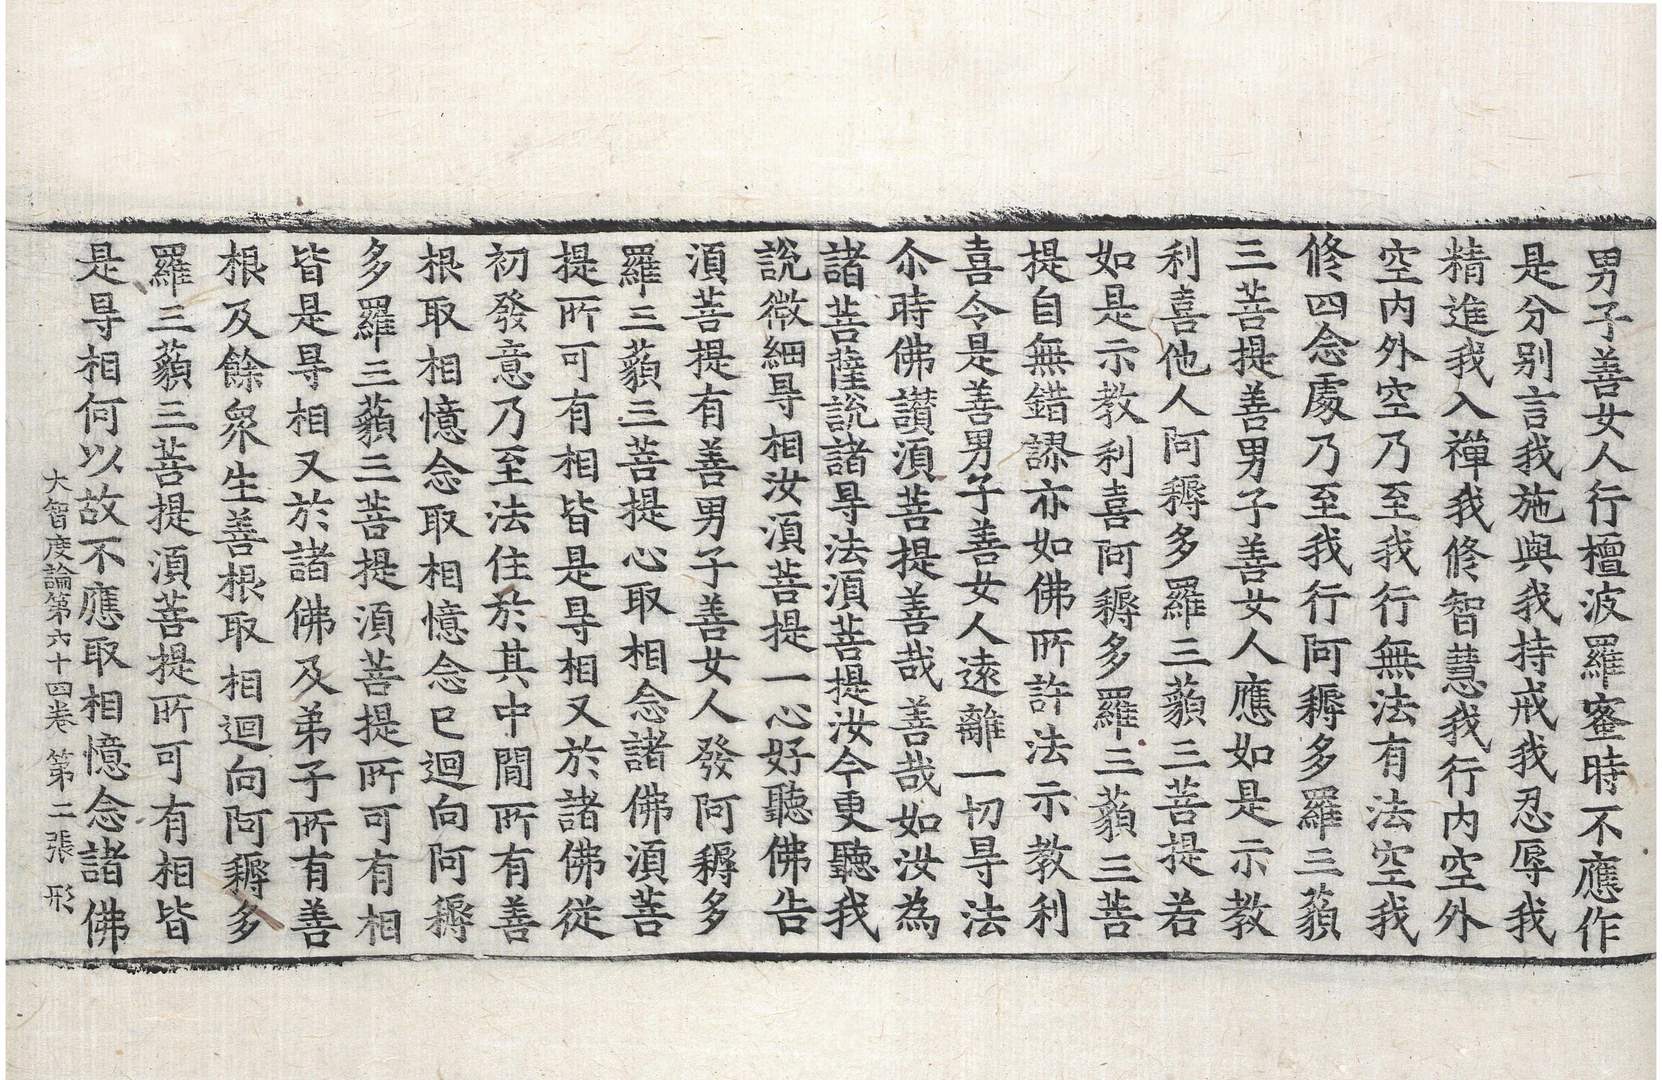 男子善女人行檀波羅蜜時不應作
是分別言我施與我持戒我忍辱我
精進我入禪我修智慧我行內空外
空內外空乃至我行無法有法空我
修四念處乃至我行阿耨多羅三藐
三菩提善男子善女人應如是示教
利喜他人阿耨多羅三藐三菩提若
如是示教利喜阿耨多羅三藐三菩
提自無錯謬亦如佛所許法示教利
喜令是善男子善女人遠離一切㝵法
尒時佛讃湏菩提善哉善哉如汝為
諸菩薩說諸㝵法湏菩提汝今更聽我
說微細㝵相汝湏菩提一心好聽佛告
湏菩提有善男子善女人發阿耨多
羅三藐三菩提心取相念諸佛湏菩
提所可有相皆是㝵相又於諸佛從
初發意乃至法住於其中閒所有善
根取相憶念取相憶念已迴向阿耨
多羅三藐三菩提湏菩提所可有相
皆是㝵相又於諸佛及弟子所有善
根及餘衆生善根取相迴向阿耨多
羅三藐三菩提湏菩提所可有相皆
是㝵相何以故不應取相憶念諸佛
大智度論第六十四卷 第二張 形